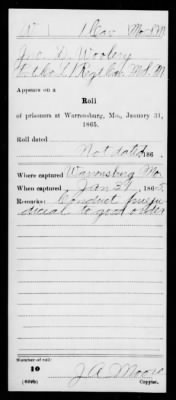 W | 1 Cav | Mo. S M
Jno. D. Woolsey
Appears on a
Roll
of prisoners at Warrensburg, Mo., January 31,
1865.
Roll dated
Not dated 186 .
Where captured Warrensburg Mo.
When captured Jan 31 , 1865.
Remarks: Conduct preju-
dicial to good order
Number of roll:
10
J A Moore
Copyist.